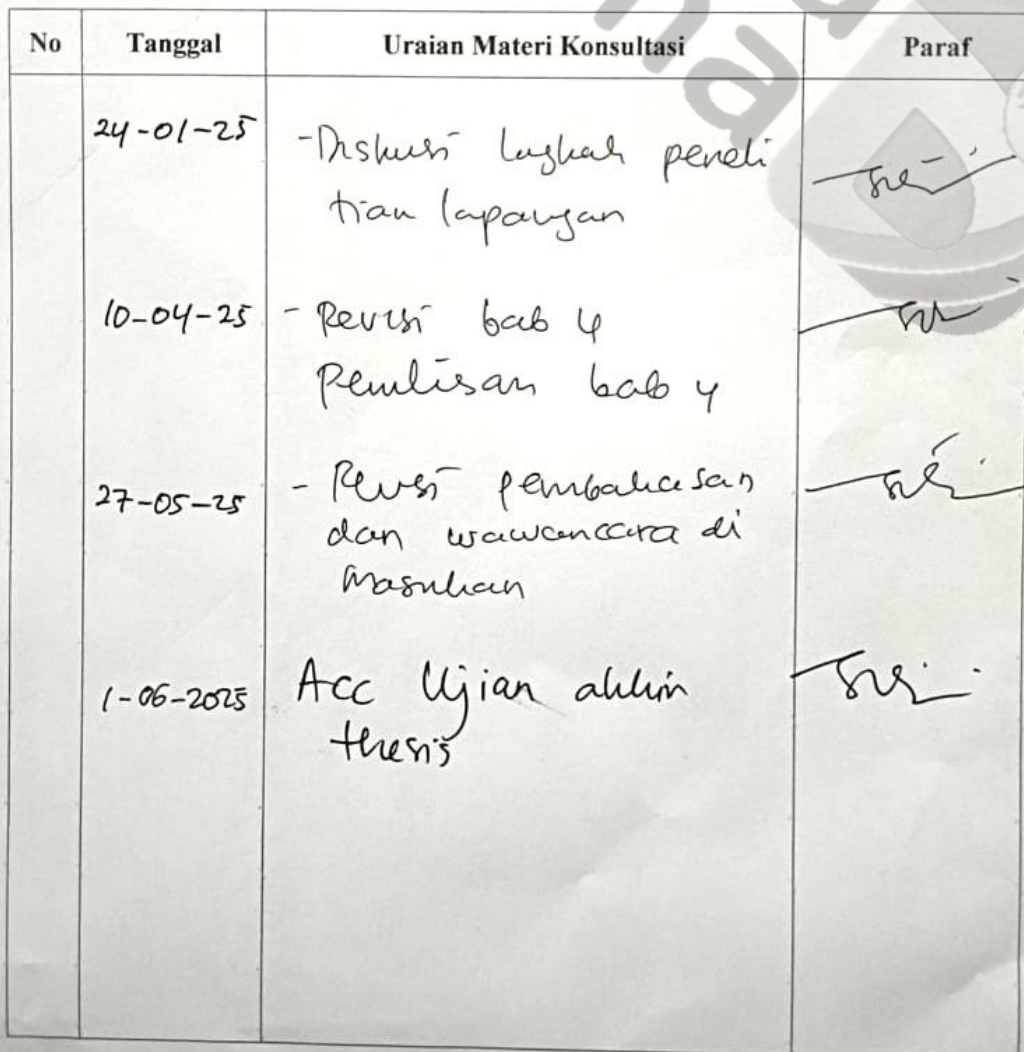 No Tanggal Uraian Materi Konsultasi Paraf
24-01-25 - Diskusi langkah peneli
tian lapangan
10-04-25 - Revisi bab 4
Penulisan bab 4
27-05-25 - Revisi pembahasan
dan wawancara di
masukan
1-06-2025 Acc Ujian akhir
thesis